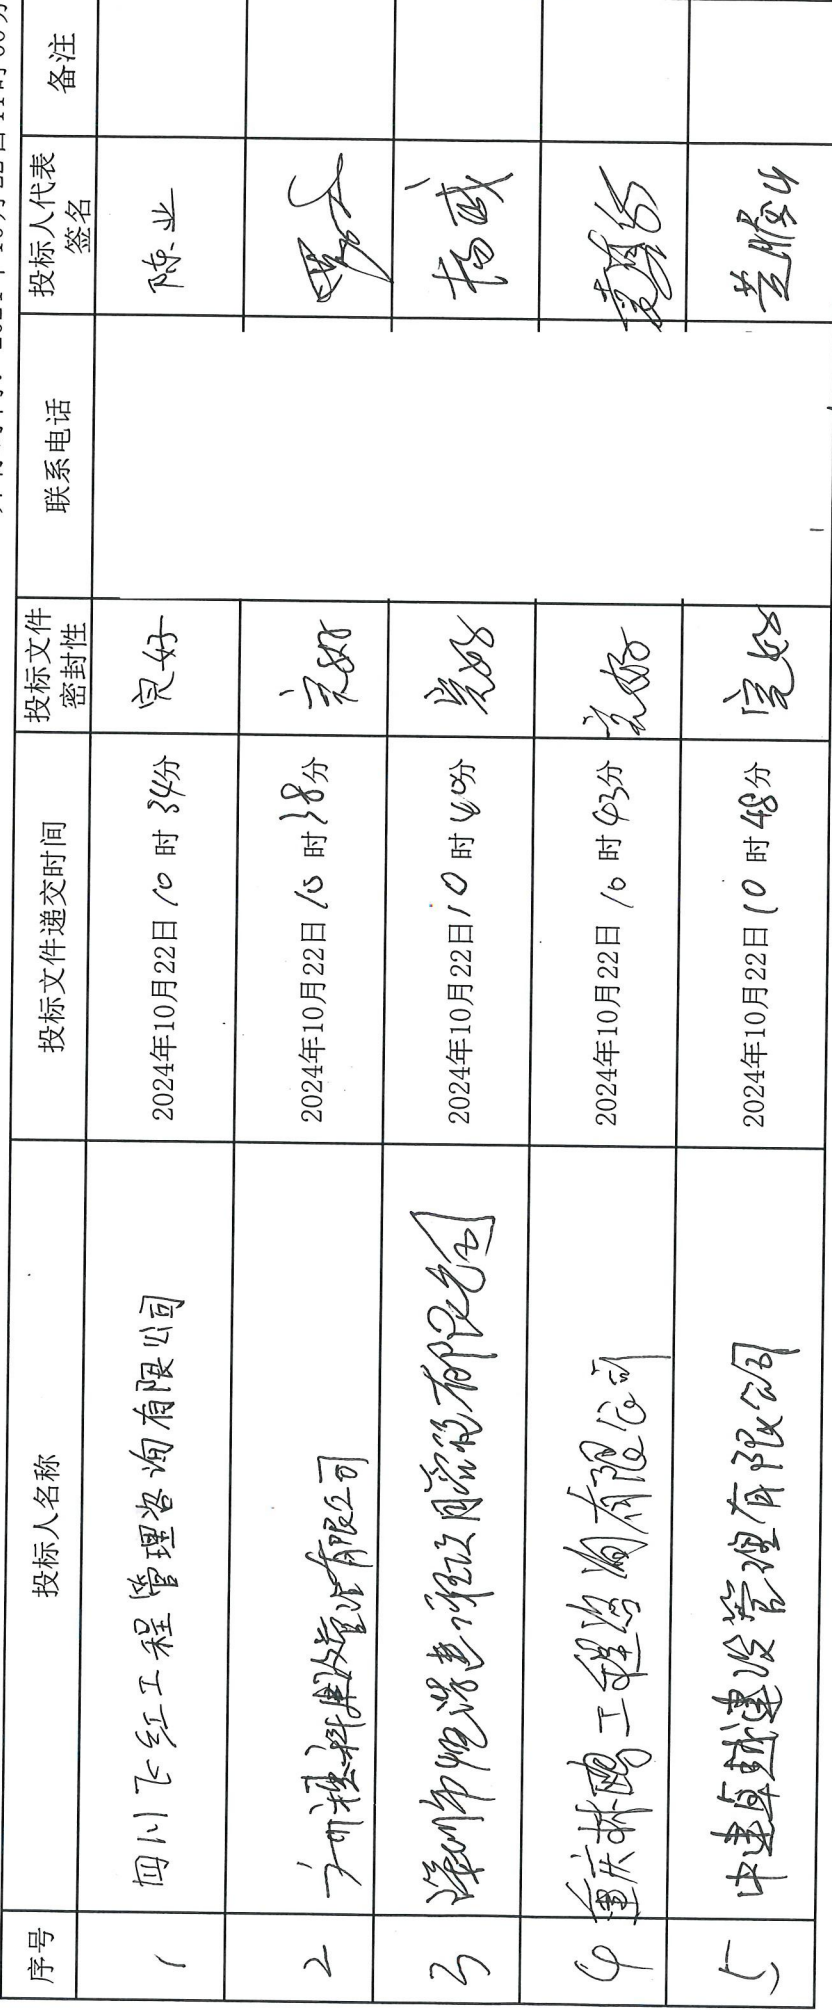 序号 投标人名称 投标文件递交时间 投标文件密封性 联系电话 投标人代表签名 备注
1 四川飞红工程管理咨询有限公司 2024年10月22日10时34分 完好 陈业
2 2024年10月22日10时38分 完好
3 2024年10月22日10时40分 完好 杨威
4 重庆林鸥工程咨询有限公司 2024年10月22日10时43分 完好
5 中建卓越建设管理有限公司 2024年10月22日10时48分 完好